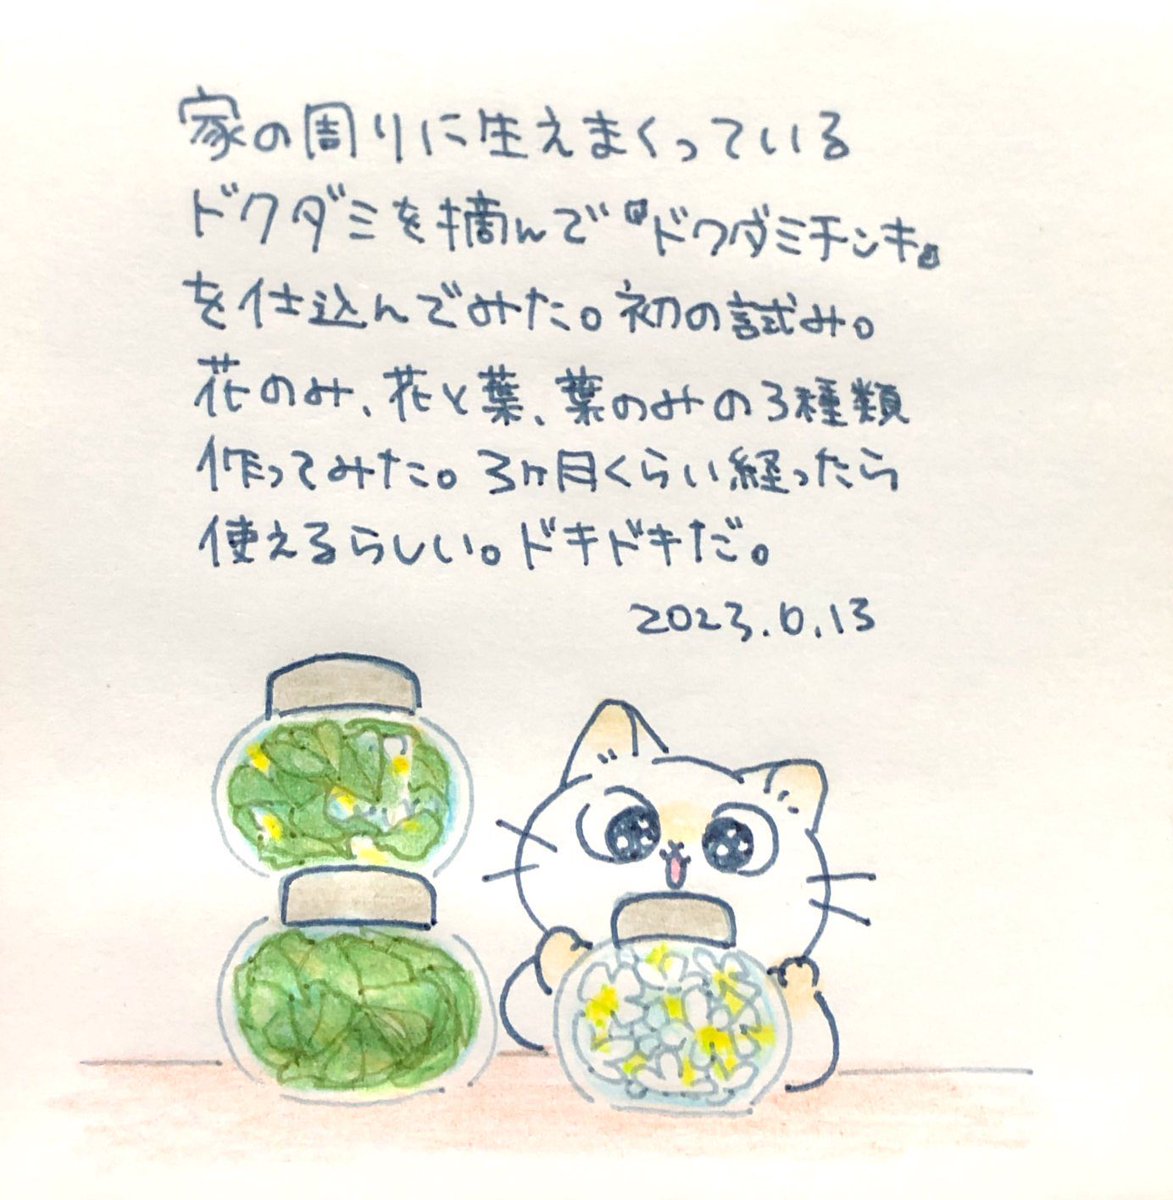 家の周りに生えまくっている
ドクダミを摘んで『ドクダミチンキ』
を仕込んでみた。初の試み。
花のみ、花と葉、葉のみの3種類
作ってみた。3ヶ月くらい経ったら
使えるらしい。ドキドキだ。
2023.6.13